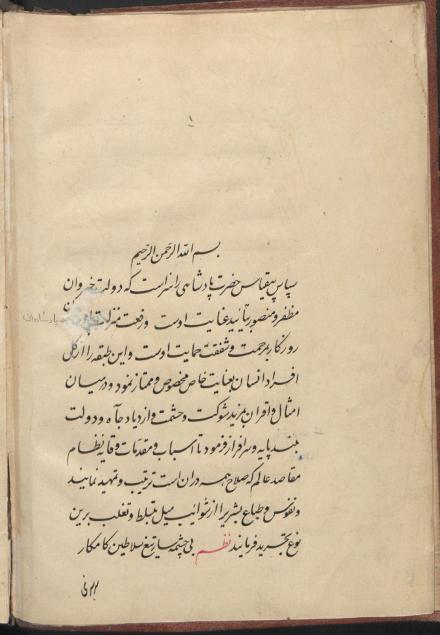 ۱
بسم الله الرحمن الرحیم
سپاس بیقیاس حضرت پادشاهی را سزاست که دولت خسروان
مظفر و منصور بتأیید عنایت اوست و رفعت منزلت
روزگار بمرحمت و شفقت حمایت اوست و این طبقه را از کل
افراد انسان بعنایت خاص مخصوص و ممتاز نمود و درمیان
امثال و اقران بمزید شوکت و حشمت و ازدیاد جاه و دولت
بلند پایه و سرافراز فرمود تا اسباب و مقدمات وقایه نظام
مقاصد عالم که صلاح همه دران است ترتیب و تمهید نمایند
و نفوس و طباع بشریرا از شوائب میل تسلط و تغلب برین
نوع تجرید فرمایند نظم بی چشمه سار تیغ سلاطین کامکار